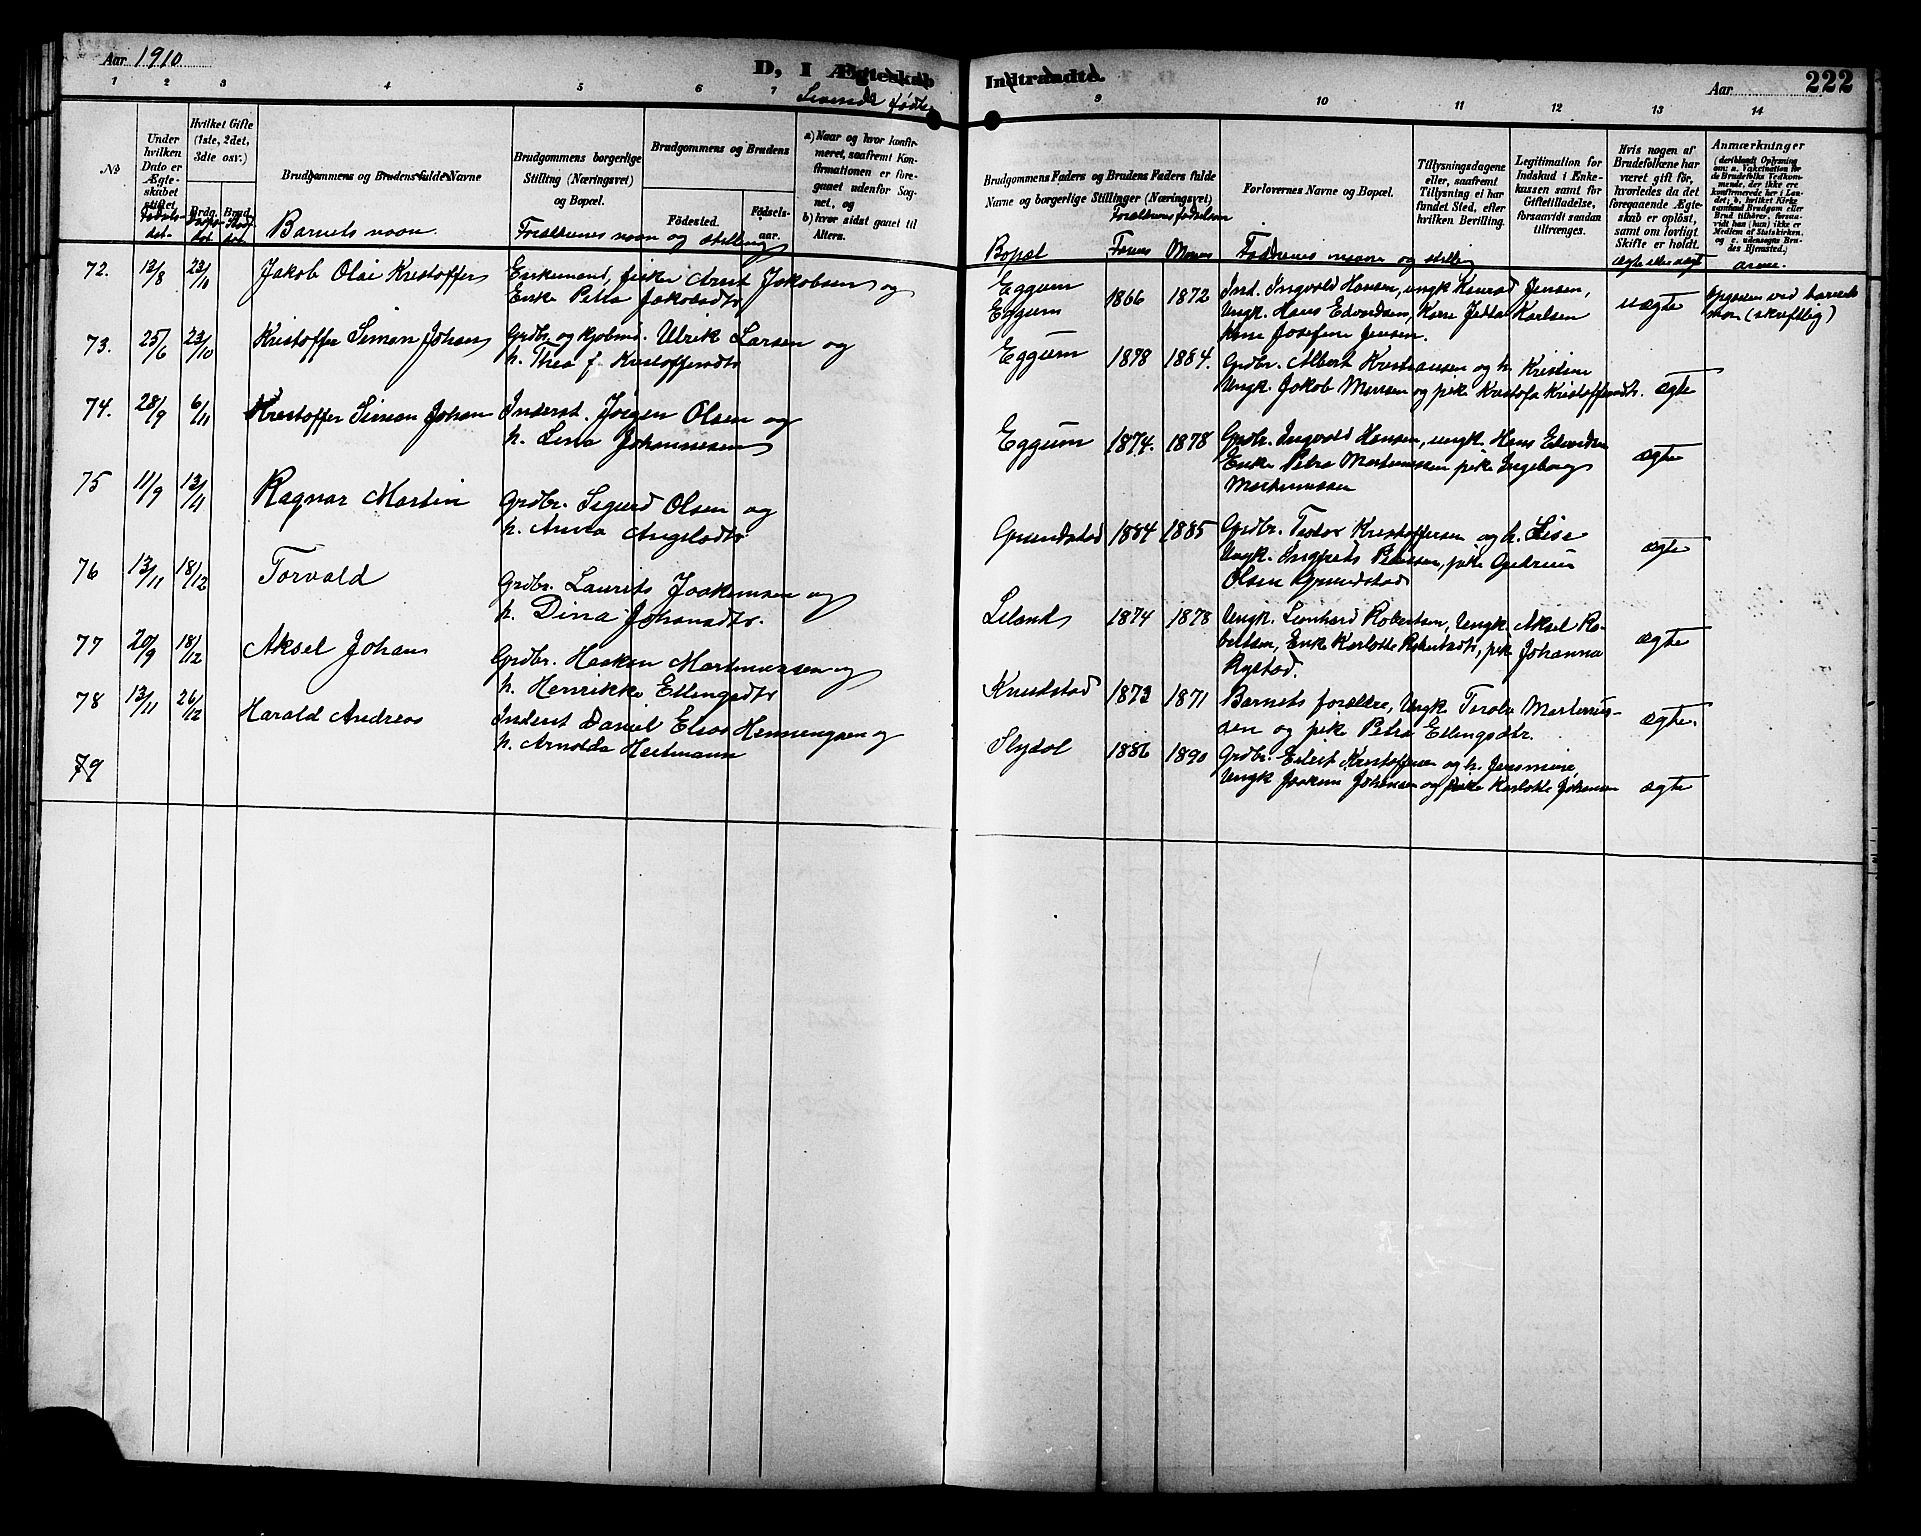 Aar 1910
D, I Ægteskab
Levende fødte
Indtraadte.
Aar
222
1 2 3 4 5 6 7
9 10 11 12 13 14
No
Under hvilken Dato er Ægteskabet stiftet.
Hvilket Gifte (1ste, 2det, 3die osv.)
Brdg. Brud.
Brudgommens og Brudens fulde Navne
Brudgommens borgerlige Stilling (Næringsvei) og Bopæl.
Brudgommens og Brudens
Fødested.
Fødselsaar.
a) Naar og hvor konfirmeret, saafremt Konfirmationen er foregaaet udenfor Sognet, og
b) hvor sidst gaaet til Alters.
Brudgommens Faders og Brudens Faders fulde Navne og borgerlige Stillinger (Næringsvei)
Forlovernes Navne og Bopæl.
Tillysningsdagene eller, saafremt Tillysning ei har fundet Sted, efter hvilken Bevilling.
Legitimation for Indskud i Enkekassen samt for Giftetilladelse, forsaavidt saadan tiltrænges.
Hvis nogen af Brudefolkene har været gift før, hvorledes da det foregaaende Ægteskab er opløst, samt om lovligt Skifte er holdt.
Anmærkninger
Fødselsdat.
Barnets navn.
Forældrenes navn og stilling
Forældrenes fødselsaar
Bopæl Farens Morens
Faddernes navne og stilling
ægte eller uægte
72. 12/8 23/10 Jakob Olai Kristoffer
Enkemand, fisker Arnt Jakobsen og
Enke Petra Jakobsdtr
Eggum
Eggum 1866 1872
Ind. Ingvold Hansen, ungk Konrad Jensen,
Ungk. Hans Edvardsen, Kone Jetta Karlsen
Kone Josefine Jensen.
uægte
Opgaven ved barnets
mor (skriftlig)
73. 25/6 23/10 Kristoffer Simon Johan
Grdbr. og kjøbmd. Ulrik Larsen og
h. Thea f. Kristoffersdtr
Eggum 1878 1884.
Grdbr. Albert Kristiansen og h. Kristine
Ungk. Jakob Monsen og pike Kristofa Kristoffersdtr.
ægte
74. 28/9 6/11 Kristoffer Simon Johan
Inderst. Jørgen Olsen og
h. Lina Johannesen
Eggum 1874. 1878
Grdbr. Ingvold Hansen, ungk. Hans Edvardsen
Enke Petra Martinussen pike Ingeborg
Martinussen
ægte
75 11/9 13/11 Ragnar Martin
Grdbr. Sigurd Olsen og
h. Anna Angelsdtr
Grundstad 1884 1885
Grdbr. Teodor Kristoffersen og h. Lise
Olsen Grundstad
ægte
76 13/11 18/12 Torvald
Grdbr. Laurits Joakimsen og
h. Dina Johansdtr.
Leland 1874 1878
Ungk. Leonhard Robertsen, Ungk. Aksel Robertsen,
Enke Karlotte Robertsdtr, pike Johanna
Rystad.
ægte
77 20/9 18/12 Aksel Johan
Grdbr. Haakon Martinussen og
h. Henrikke Ellingsdtr
Knudstad 1873 1871
Barnets forældre, Ungk Torolv Martinussen
og pike Petra Ellingsdtr.
ægte.
78 13/11 26/12 Harald Andreas
Inderst Daniel Elias Henningsen og
h. Arnolda Hartmann
Slydal 1886 1890
Grdbr. Edvit Kristoffersen og h. Jensmine,
Ungk Joakim Johansen og pike Karlotte Johansen
ægte
79